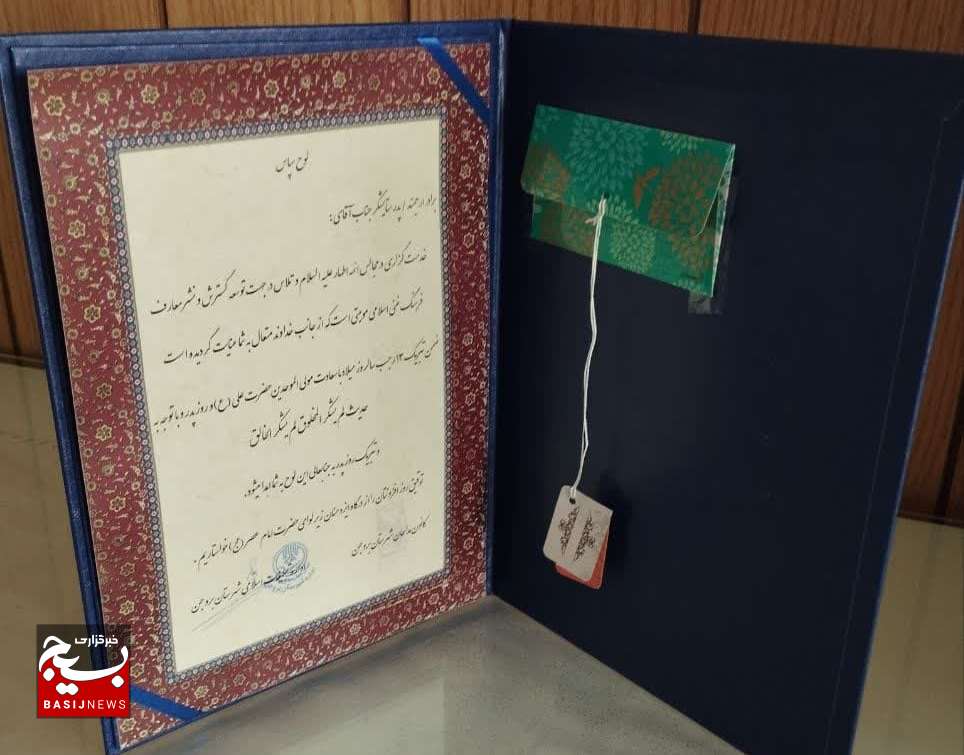 لوح سپاس
برادر ارجمند / پدر ستایشگر جناب آقای :
خدمت گزاری در مجالس ائمه اطهار علیه السلام و تلاس در جهت توسعه گسترش و نشر معارف
فرهنگ غنی اسلامی موهبتی است که از جانب خداوند متعال به شما عنایت گردیده است
ضمن تبریک ۱۳ رجب سالروز میلاد با سعادت مولی الموحدین حضرت علی (ع) و روز پدر و با توجه به
حدیث لم یشکر المخلوق لم یشکر الخالق
و تبریک روز پدر به جنابعالی این لوح به شما اهدا میشود.
توفیق روز افزونتان را از درگاه ایزد منان زیر لوای حضرت امام عصر (عج) خواستاریم .
کانون مداحان شهرستان بروجن
اداره تبلیغات اسلامی شهرستان بروجن
خبرگزاری
بسیج
BASIJNEWS